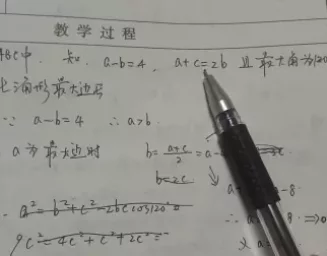 教学过程
ABC中. 知. a-b=4, a+c=2b 且最大角为120
求三角形最大边长
∵ a-b=4 ∴ a>b
a为最大边时 b=\frac{a+c}{2}=a-
b=2c
a²=b²+c²-2bc cos120°=
∴ a 8 ⇒
4c²+c²+2c²=
又 a